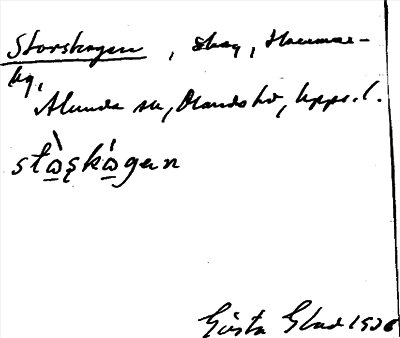 Storskogen, skog, Hammar-
by,
Alunda sn, Olands hd, Upps. l.
stɷ̀ʂkɷ́gen
Gösta Glad 1926